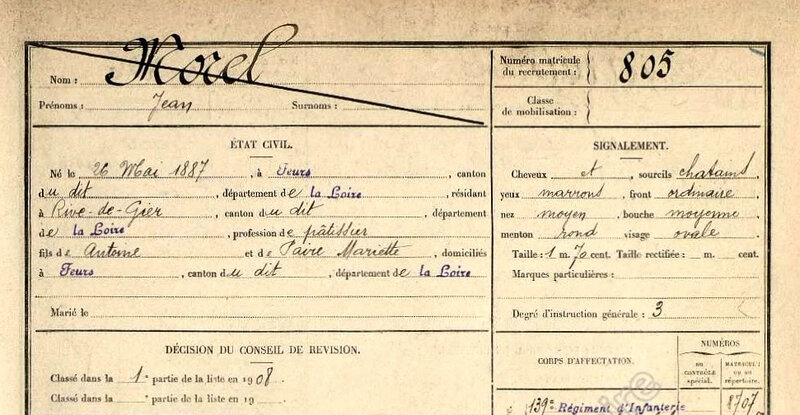 Nom : Morel
Prénoms : Jean Surnoms :
Numéro matricule du recrutement : 805
Classe de mobilisation :
ÉTAT CIVIL.
Né le 26 Mai 1887, à Feurs, canton
du dit, département de la Loire, résidant
à Rive-de-Gier, canton du dit, département
de la Loire, profession de pâtissier
fils de Antoine et de Paire Mariette, domiciliés
à Feurs, canton du dit, département de la Loire
Marié le
SIGNALEMENT.
Cheveux et sourcils chatains
yeux marrons, front ordinaire
nez moyen, bouche moyenne
menton rond visage ovale
Taille : 1 m. 70 cent. Taille rectifiée : m. cent.
Marques particulières :
Degré d'instruction générale : 3
DÉCISION DU CONSEIL DE REVISION.
Classé dans la 1e partie de la liste en 1908.
Classé dans la partie de la liste en 19
CORPS D'AFFECTATION.
NUMÉROS
AU CONTRÔLE spécial.
MATRICULE ou au répertoire.
139e Régiment d'Infanterie 8707